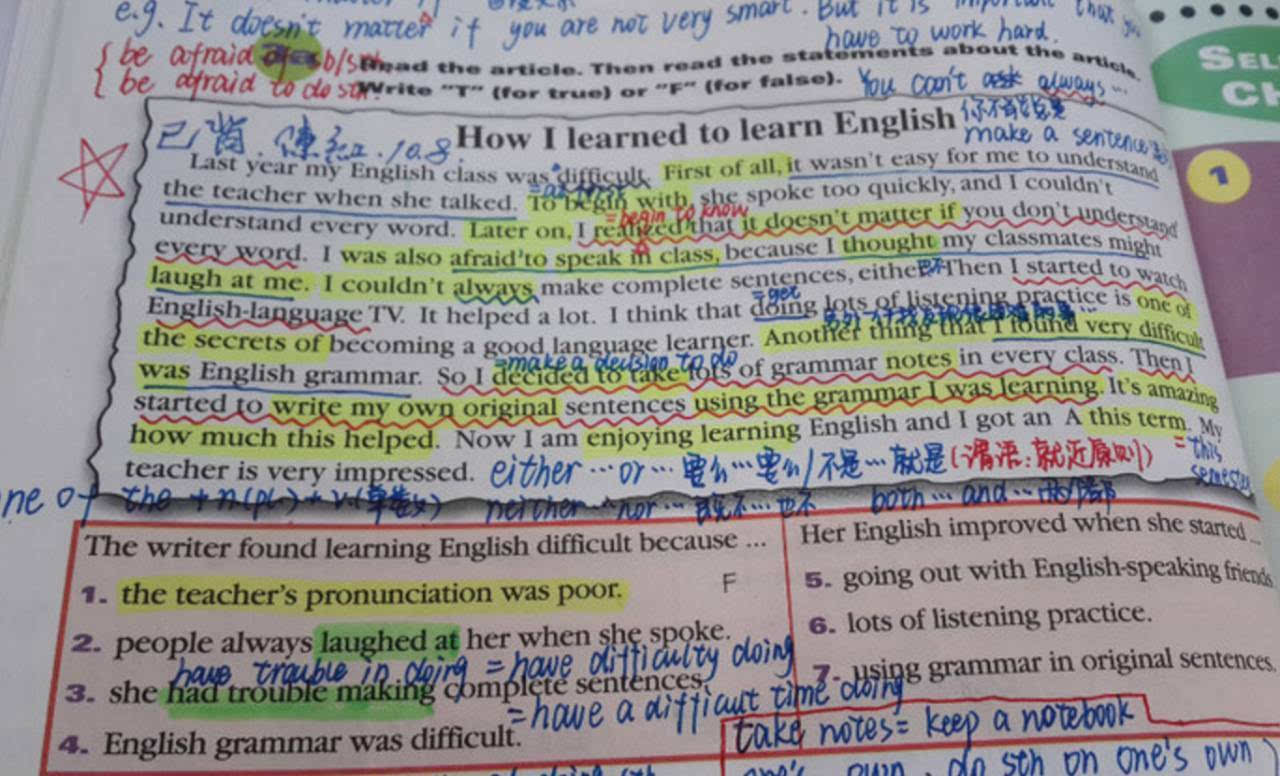 e.g. It doesn't matter if you are not very smart. But it is important that you
have to work hard.
be afraid of sb/sth
be afraid to do sth
Read the article. Then read the statements about the article.
Write "T" (for true) or "F" (for false).
You can't always...
你不可能总是
make a sentence
已背. 陈红. 10.8.
How I learned to learn English
SEL
CH
1
Last year my English class was difficult. First of all, it wasn't easy for me to understand
the teacher when she talked. To begin with, she spoke too quickly, and I couldn't
=begin to know
understand every word. Later on, I realized that it doesn't matter if you don't understand
every word. I was also afraid to speak in class, because I thought my classmates might
laugh at me. I couldn't always make complete sentences, either. Then I started to watch
=get
English-language TV. It helped a lot. I think that doing lots of listening practice is one of
the secrets of becoming a good language learner. Another thing that I found very difficult
=make a decision to do
was English grammar. So I decided to take lots of grammar notes in every class. Then I
started to write my own original sentences using the grammar I was learning. It's amazing
how much this helped. Now I am enjoying learning English and I got an A this term. My
=this semester
teacher is very impressed.
either … or …要么…要么/不是…就是(谓语:就近原则)
one of the + n(pl) + v(单数)
neither … nor … 既不…也不
both … and … 两个都
The writer found learning English difficult because ...
1. the teacher's pronunciation was poor. F
2. people always laughed at her when she spoke.
have trouble in doing = have difficulty doing
3. she had trouble making complete sentences.
= have a difficult time doing
4. English grammar was difficult.
Her English improved when she started ...
5. going out with English-speaking friends
6. lots of listening practice.
7. using grammar in original sentences.
take notes = keep a notebook
one's own. do sth on one's own